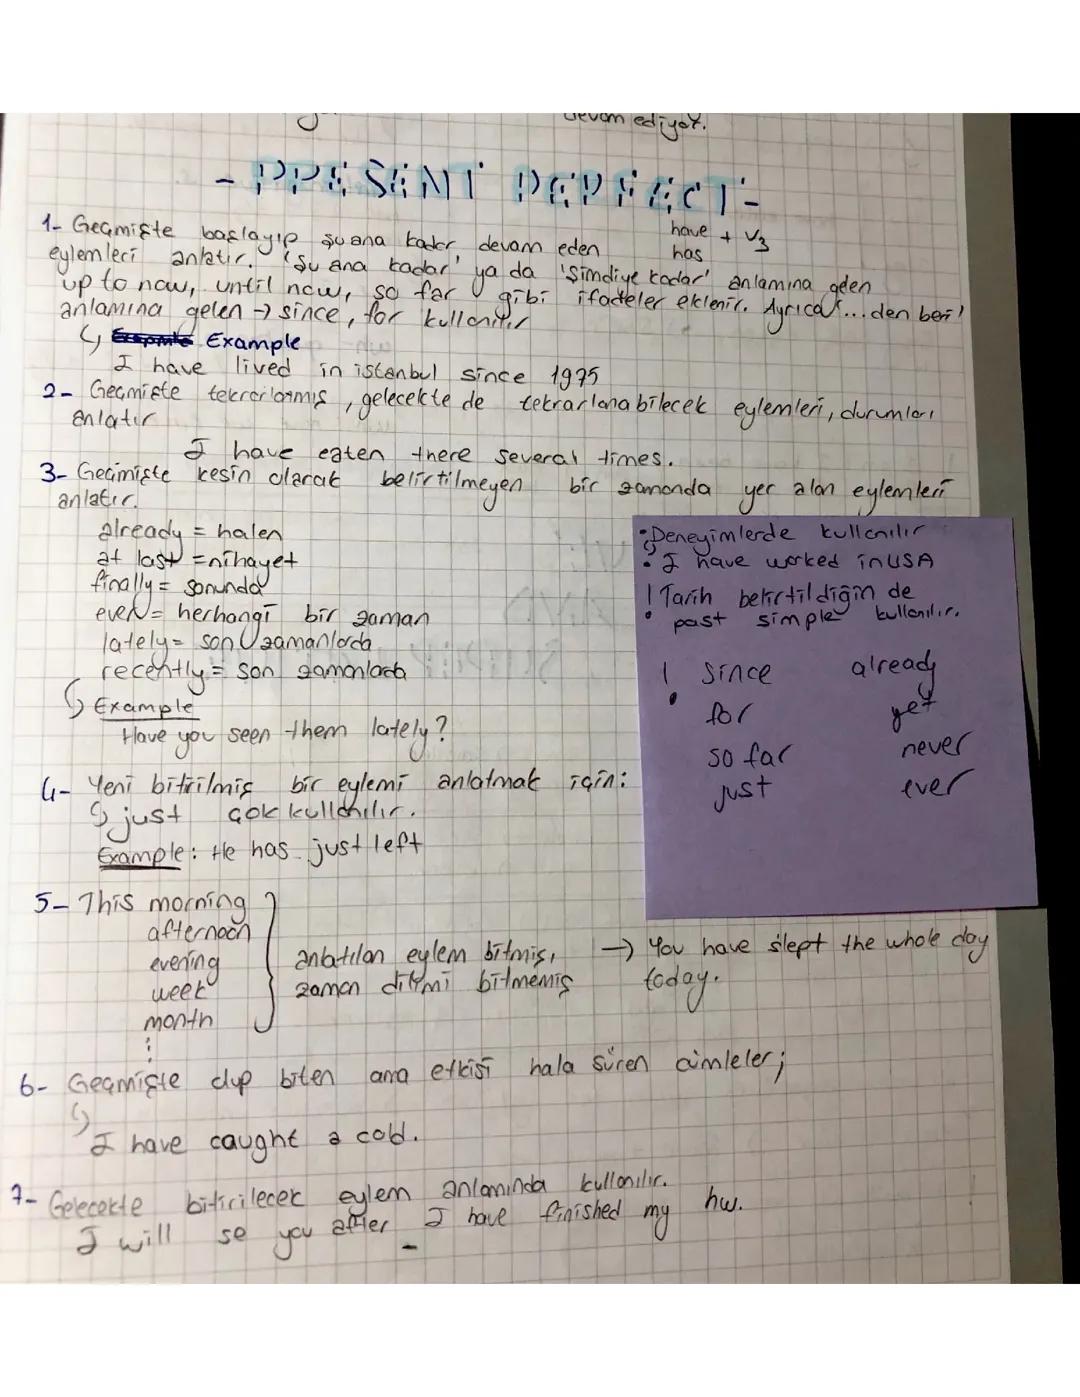 devam ediyor.
- PRESENT PERFECT -
1- Geçmişte başlayıp şuana kadar devam eden
have + V3
has
eylemleri anlatır. 'Şu ana kadar' ya da 'Şimdiye kadar' anlamına gelen
up to now, until now, so far gibi ifadeler eklenir. Ayrıca '...den beri'
anlamına gelen → since, for kullanılır
Example
I have lived in istanbul since 1975
2- Geçmişte tekrarlanmış, gelecekte de tekrarlanabilecek eylemleri, durumları
anlatır
I have eaten there several times.
3- Geçmişte kesin olarak belirtilmeyen bir zamanda yer alan eylemleri
anlatır.
already = halen
at last = nihayet
finally = sonunda
ever = herhangi bir zaman
lately = son zamanlarda
recently = son zamanlarda
Example
Have you seen them lately?
4- Yeni bitirilmiş bir eylemi anlatmak için:
just çok kullanılır.
Example: He has just left
• Deneyimlerde kullanılır
• I have worked in USA
! Tarih belirtildiğin de
past simple kullanılır.
! since already
for yet
so far never
just ever
5- This morning
afternoon
evening
week
month
⋮
anlatılan eylem bitmiş,
zaman dilimi bitmemiş
→ You have slept the whole day
today.
6- Geçmişte olup biten ama etkisi hala süren cümleler;
I have caught a cold.
7- Gelecekte bitirilecek eylem anlamında kullanılır.
I will se you after I have finished my hw.